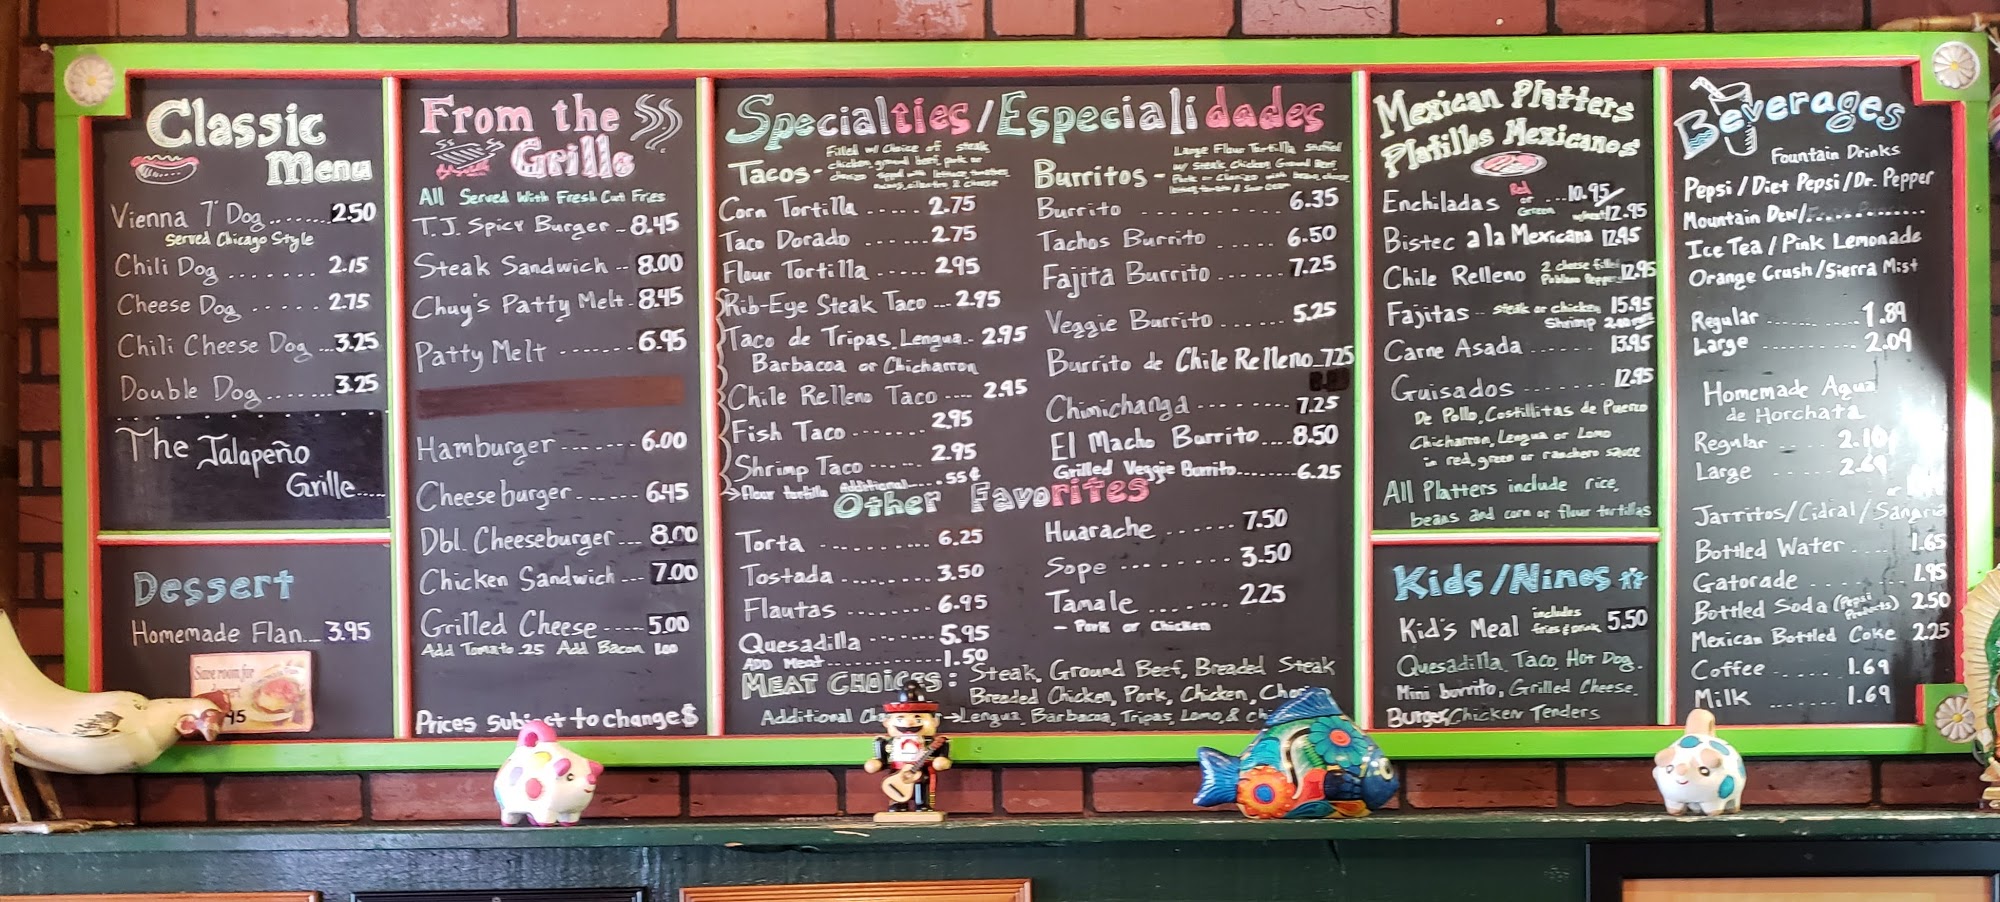 Classic
Menu
Vienna 7" Dog ....... 2.50
Served Chicago Style
Chili Dog ........ 2.15
Cheese Dog ...... 2.75
Chili Cheese Dog ... 3.25
Double Dog ....... 3.25
The Jalapeño
Grille.....
Dessert
Homemade Flan... 3.95
Save room for
From the
Grille
All Served With Fresh Cut Fries
T.J. Spicy Burger - 8.45
Steak Sandwich -- 8.00
Chuy's Patty Melt - 8.45
Patty Melt ....... 6.95
Hamburger ....... 6.00
Cheeseburger ...... 6.45
Dbl. Cheeseburger ... 8.00
Chicken Sandwich --- 7.00
Grilled Cheese ---- 5.00
Add Tomato .25 Add Bacon 1.00
Prices subject to change $
Specialties/Especialidades
Tacos - Filled w/ choice of steak
chicken, ground beef, pork or
chorizo - topped with lettuce, tomatoes,
onions, cilantro & cheese
Corn Tortilla ..... 2.75
Taco Dorado ...... 2.75
Flour Tortilla ..... 2.95
Rib-Eye Steak Taco ... 2.95
Taco de Tripas, Lengua.. 2.95
Barbacoa or Chicharron
Chile Relleno Taco .... 2.95
Fish Taco ........ 2.95
Shrimp Taco ...... 2.95
Flour tortilla additional...... 55¢
Burritos - Large Flour Tortilla Stuffed
w/ Steak, Chicken, Ground Beef,
Pork or Chorizo with beans, cheese
lettuce, tomato & Sour Cream
Burrito .......... 6.35
Tachos Burrito ..... 6.50
Fajita Burrito ....... 7.25
Veggie Burrito ...... 5.25
Burrito de Chile Relleno.. 7.25
Chimichanga ........ 7.25
El Macho Burrito .... 8.50
Grilled Veggie Burrito.......... 6.25
Other Favorites
Torta .......... 6.25
Tostada ......... 3.50
Flautas ........ 6.95
Quesadilla ....... 5.95
ADD Meat.............. 1.50
Huarache ....... 7.50
Sope .......... 3.50
Tamale ....... 2.25
- Pork or Chicken
MEAT CHOICES: Steak, Ground Beef, Breaded Steak
Breaded Chicken, Pork, Chicken,
Additional Lengua, Barbacoa, Tripas, Lomo, &
Mexican Platters
Platillos Mexicanos
Enchiladas Red or Green ... 10.95/ 12.95
Bistec a la Mexicana 12.95
Chile Relleno 2 cheese filled Poblano Peppers 12.95
Fajitas .. steak or chicken 15.95
Shrimp 2.00
Carne Asada ...... 13.95
Guisados ........ 12.95
De Pollo, Costillitas de Puerco
Chicharron, Lengua or Lomo
in red, green or ranchero sauce
All Platters include rice,
beans and corn or flour tortillas
Kids/Ninos
Kid's Meal includes fries & drink 5.50
Quesadilla, Taco, Hot Dog.
Mini burrito, Grilled Cheese.
Burger, Chicken Tenders
Beverages
Fountain Drinks
Pepsi/Diet Pepsi/Dr. Pepper
Mountain Dew/..............
Ice Tea / Pink Lemonade
Orange Crush/Sierra Mist
Regular ............ 1.89
Large .......... 2.09
Homemade Agua
de Horchata
Regular .... 2.10
Large ..... 2.69
Jarritos/Cidral/Sangria
Bottled Water .... 1.65
Gatorade ........ 1.95
Bottled Soda (Pepsi Products) 2.50
Mexican Bottled Coke 2.25
Coffee ...... 1.69
Milk ....... 1.69